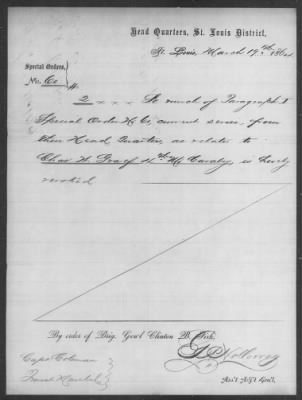 Head Quarters, St. Louis District,
St. Louis, March 19th 1864
Special Orders,
No. 60
2 So much of Paragraph 1
Special Order No. current series, from
these Head Quarters, as relates to
Chas H Graef 11th Mo Cavalry, is hereby
revoked
By order of Brig. Gen'l Clinton B. Fisk,
Ass't Adj't Gen'l.
Capt Colman